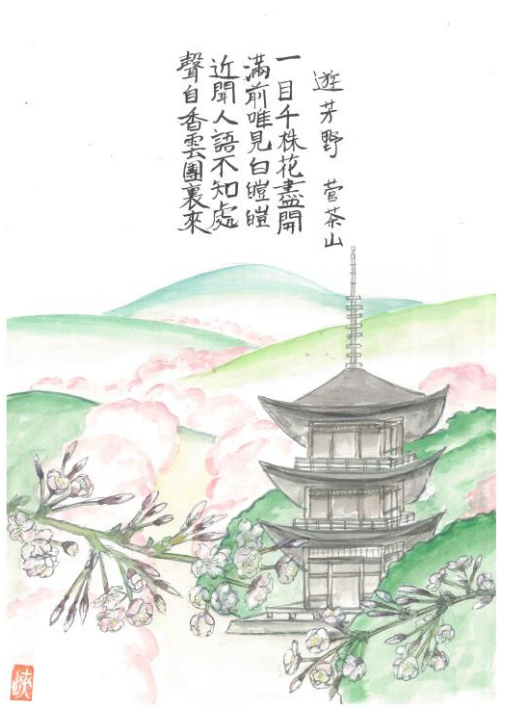 遊芳野 菅茶山
一目千株花盡開
滿前唯見白皚皚
近聞人語不知處
聲自香雲團裏來